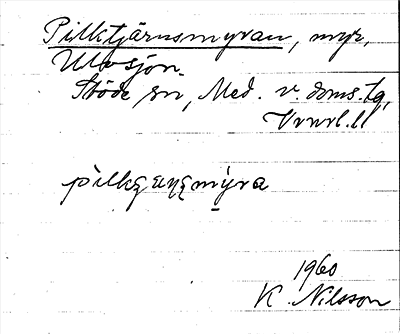 Pilktjärnsmyran, myr,
Ulvsjön.
Stöde sn, Med. v. doms. tg,
Vrnrl. ll
1960
K. Nilsson